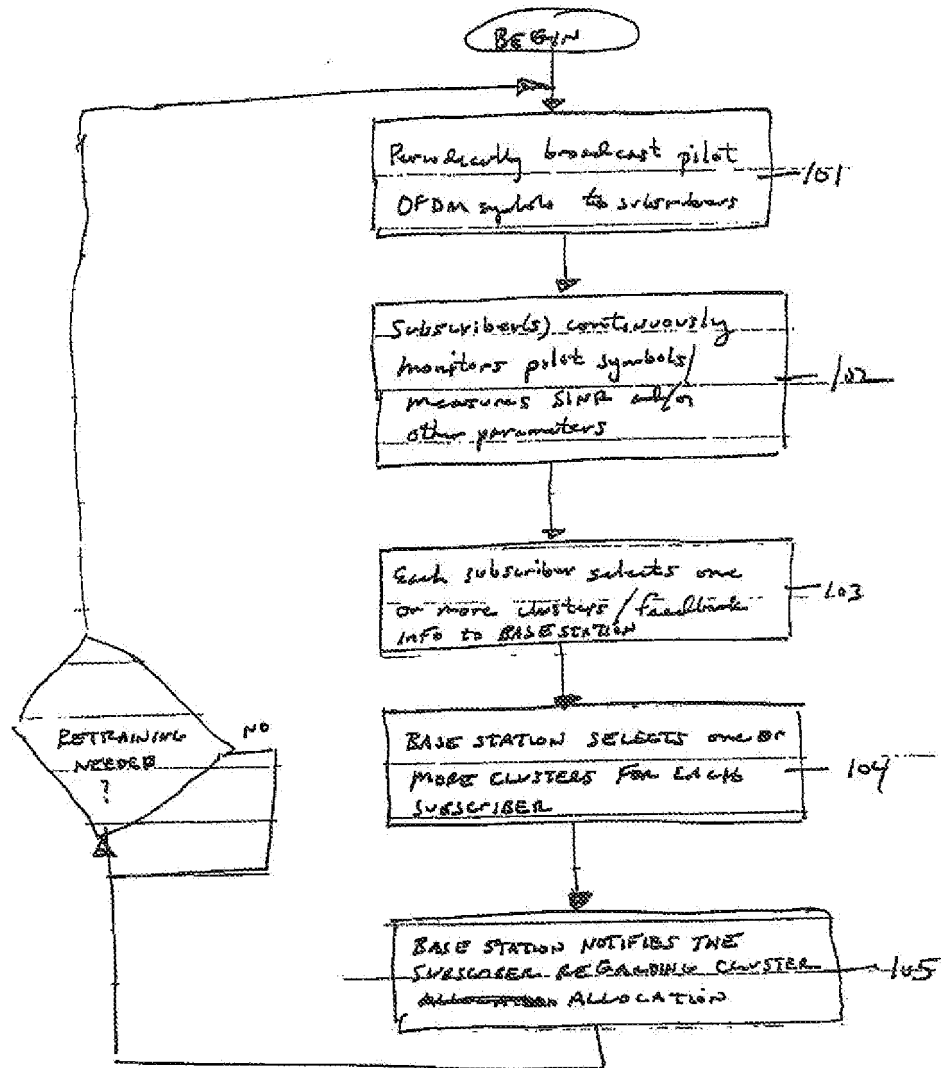 BEGIN
Periodically broadcast pilot
OFDM symbols to subscribers
101
Subscriber(s) continuously
monitors pilot symbols/
measures SINR and/or
other parameters
102
Each subscriber selects one
or more clusters/feedback
INFO to BASE STATION
103
BASE STATION SELECTS one or
MORE CLUSTERS FOR EACH
SUBSCRIBER
104
BASE STATION NOTIFIES THE
SUBSCRIBER REGARDING CLUSTER
ALLOCATION
105
RETRAINING
NEEDED
?
NO